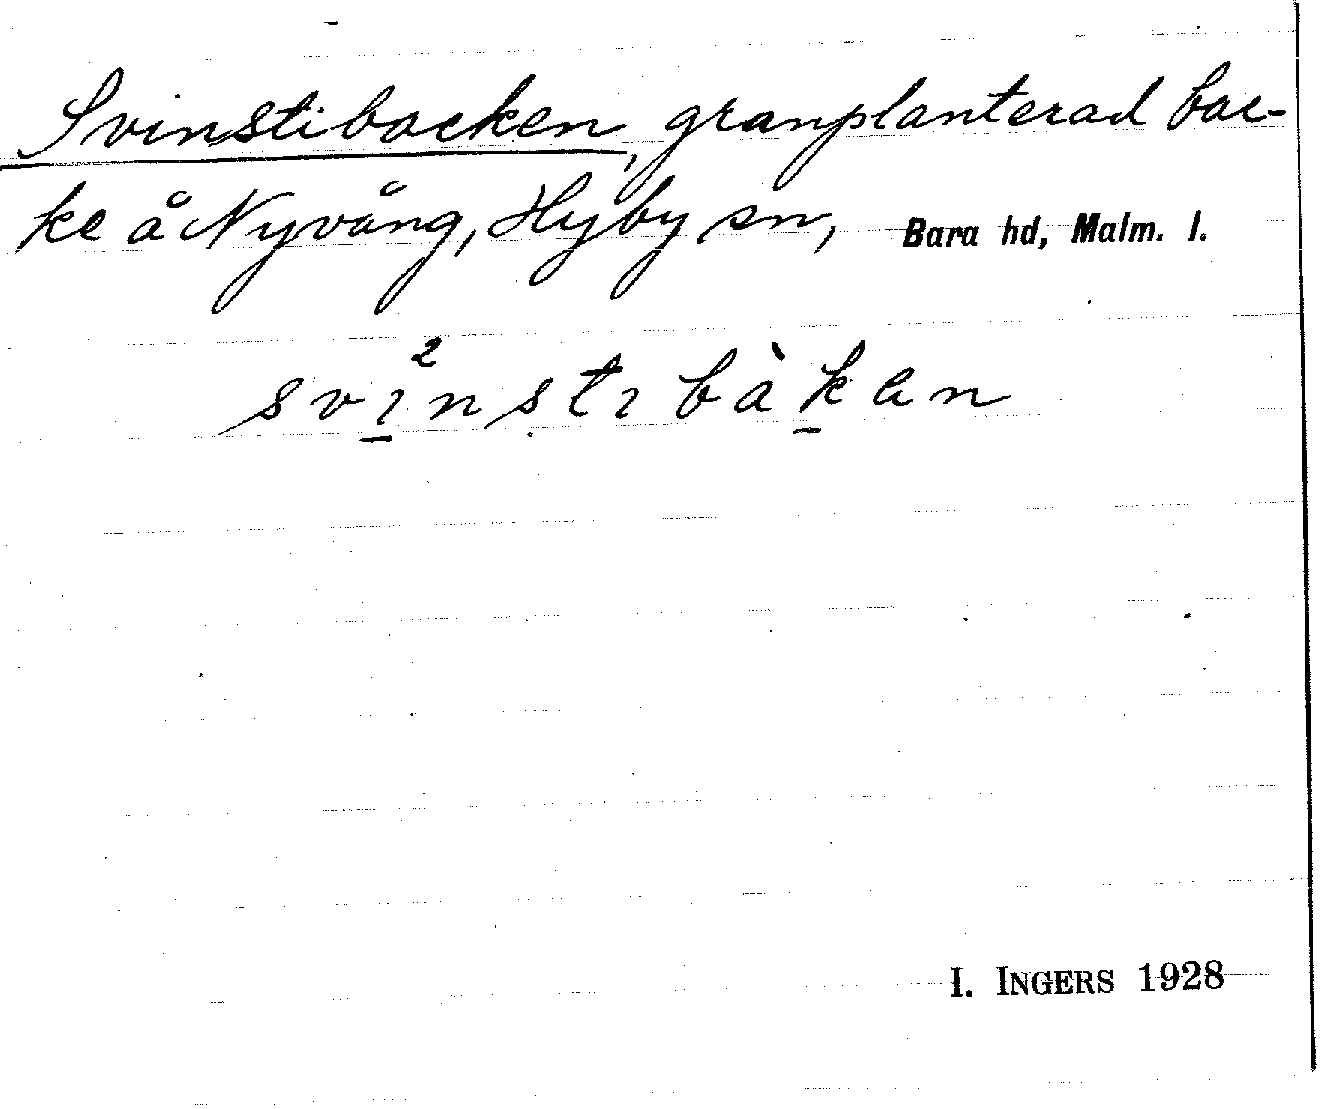 Svinstibacken, granplanterad bac-
ke å Nyvång, Hyby sn, Bara hd, Malm. l.
svı̲²nstıbàk̲en
I. INGERS 1928